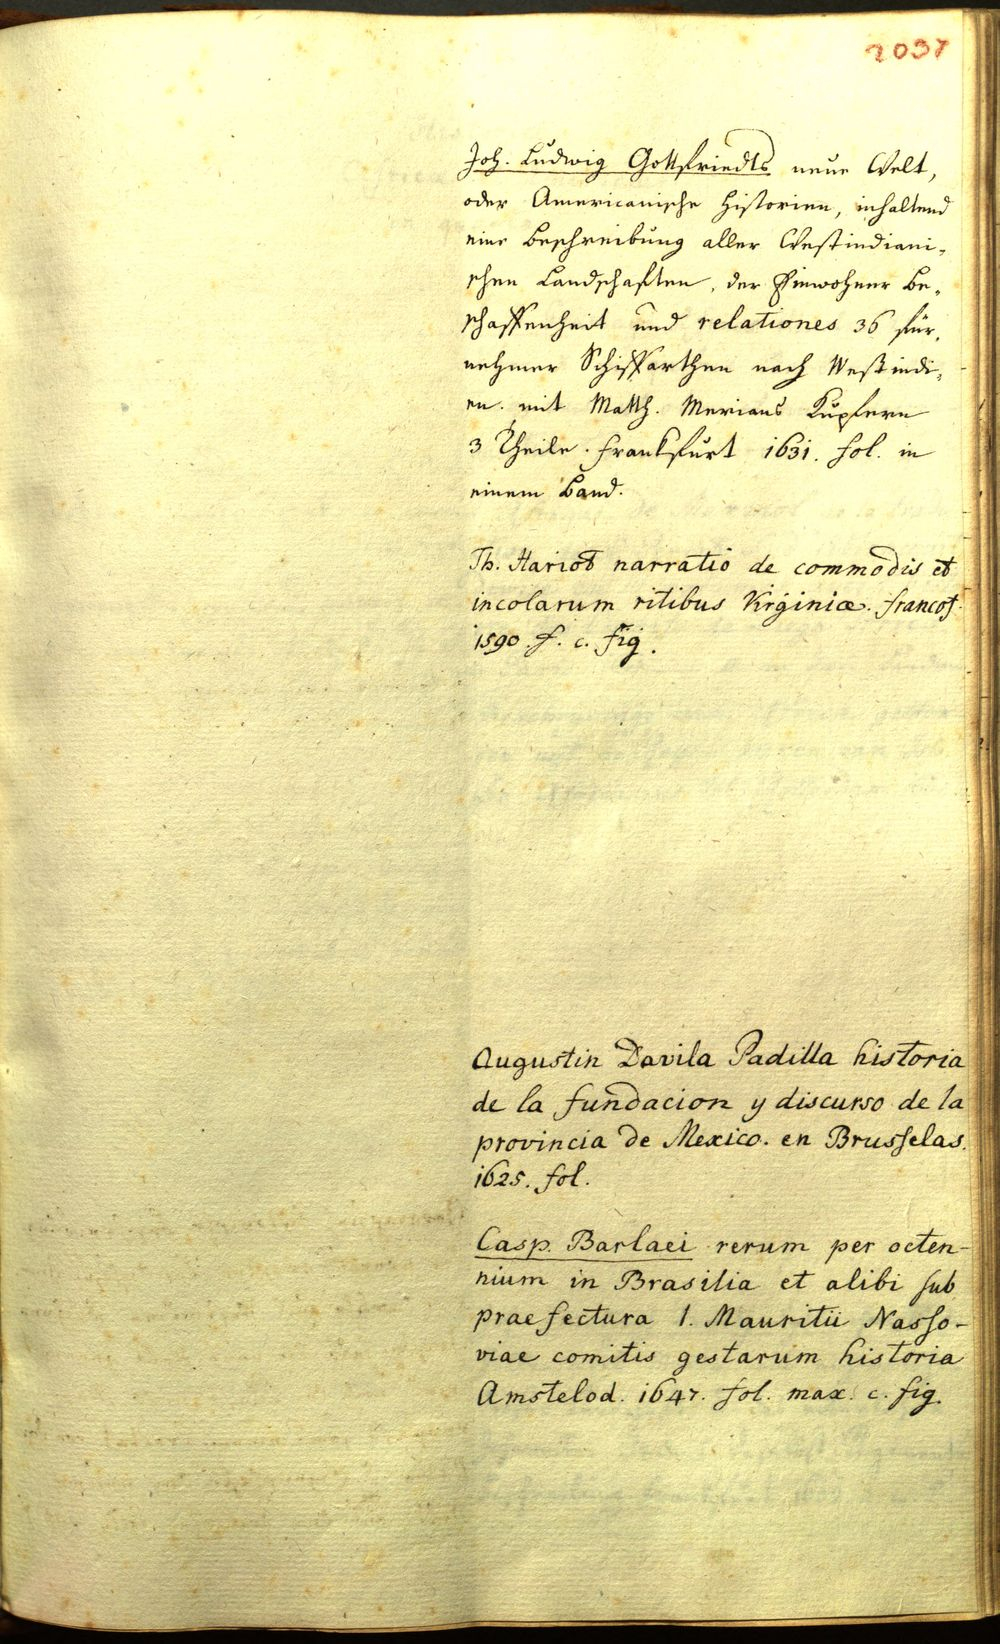 2037
Joh. Ludwig Gottfriedts neue Welt,
oder Americanische Historien, inhaltend
eine Beschreibung aller Westindiani-
schen Landschafften, der Einwohner Be-
schaffenheit und relationes 36 für-
nehmer Schiffarthen nach Westindi-
en. mit Matth. Merians Kupfern
3 Theile. Frankfurt 1631. fol. in
einem Band.
Th. Hariot narratio de commodis et
incolarum ritibus Virginiæ. francof.
1590. f. c. fig.
Augustin Davila Padilla historia
de la fundacion y discurso de la
provincia de Mexico. en Brusselas.
1625. fol.
Casp. Barlaei rerum per octen-
nium in Brasilia et alibi sub
praefectura I. Mauritii Nasso-
viae comitis gestarum historia
Amstelod. 1647. fol. max. c. fig.